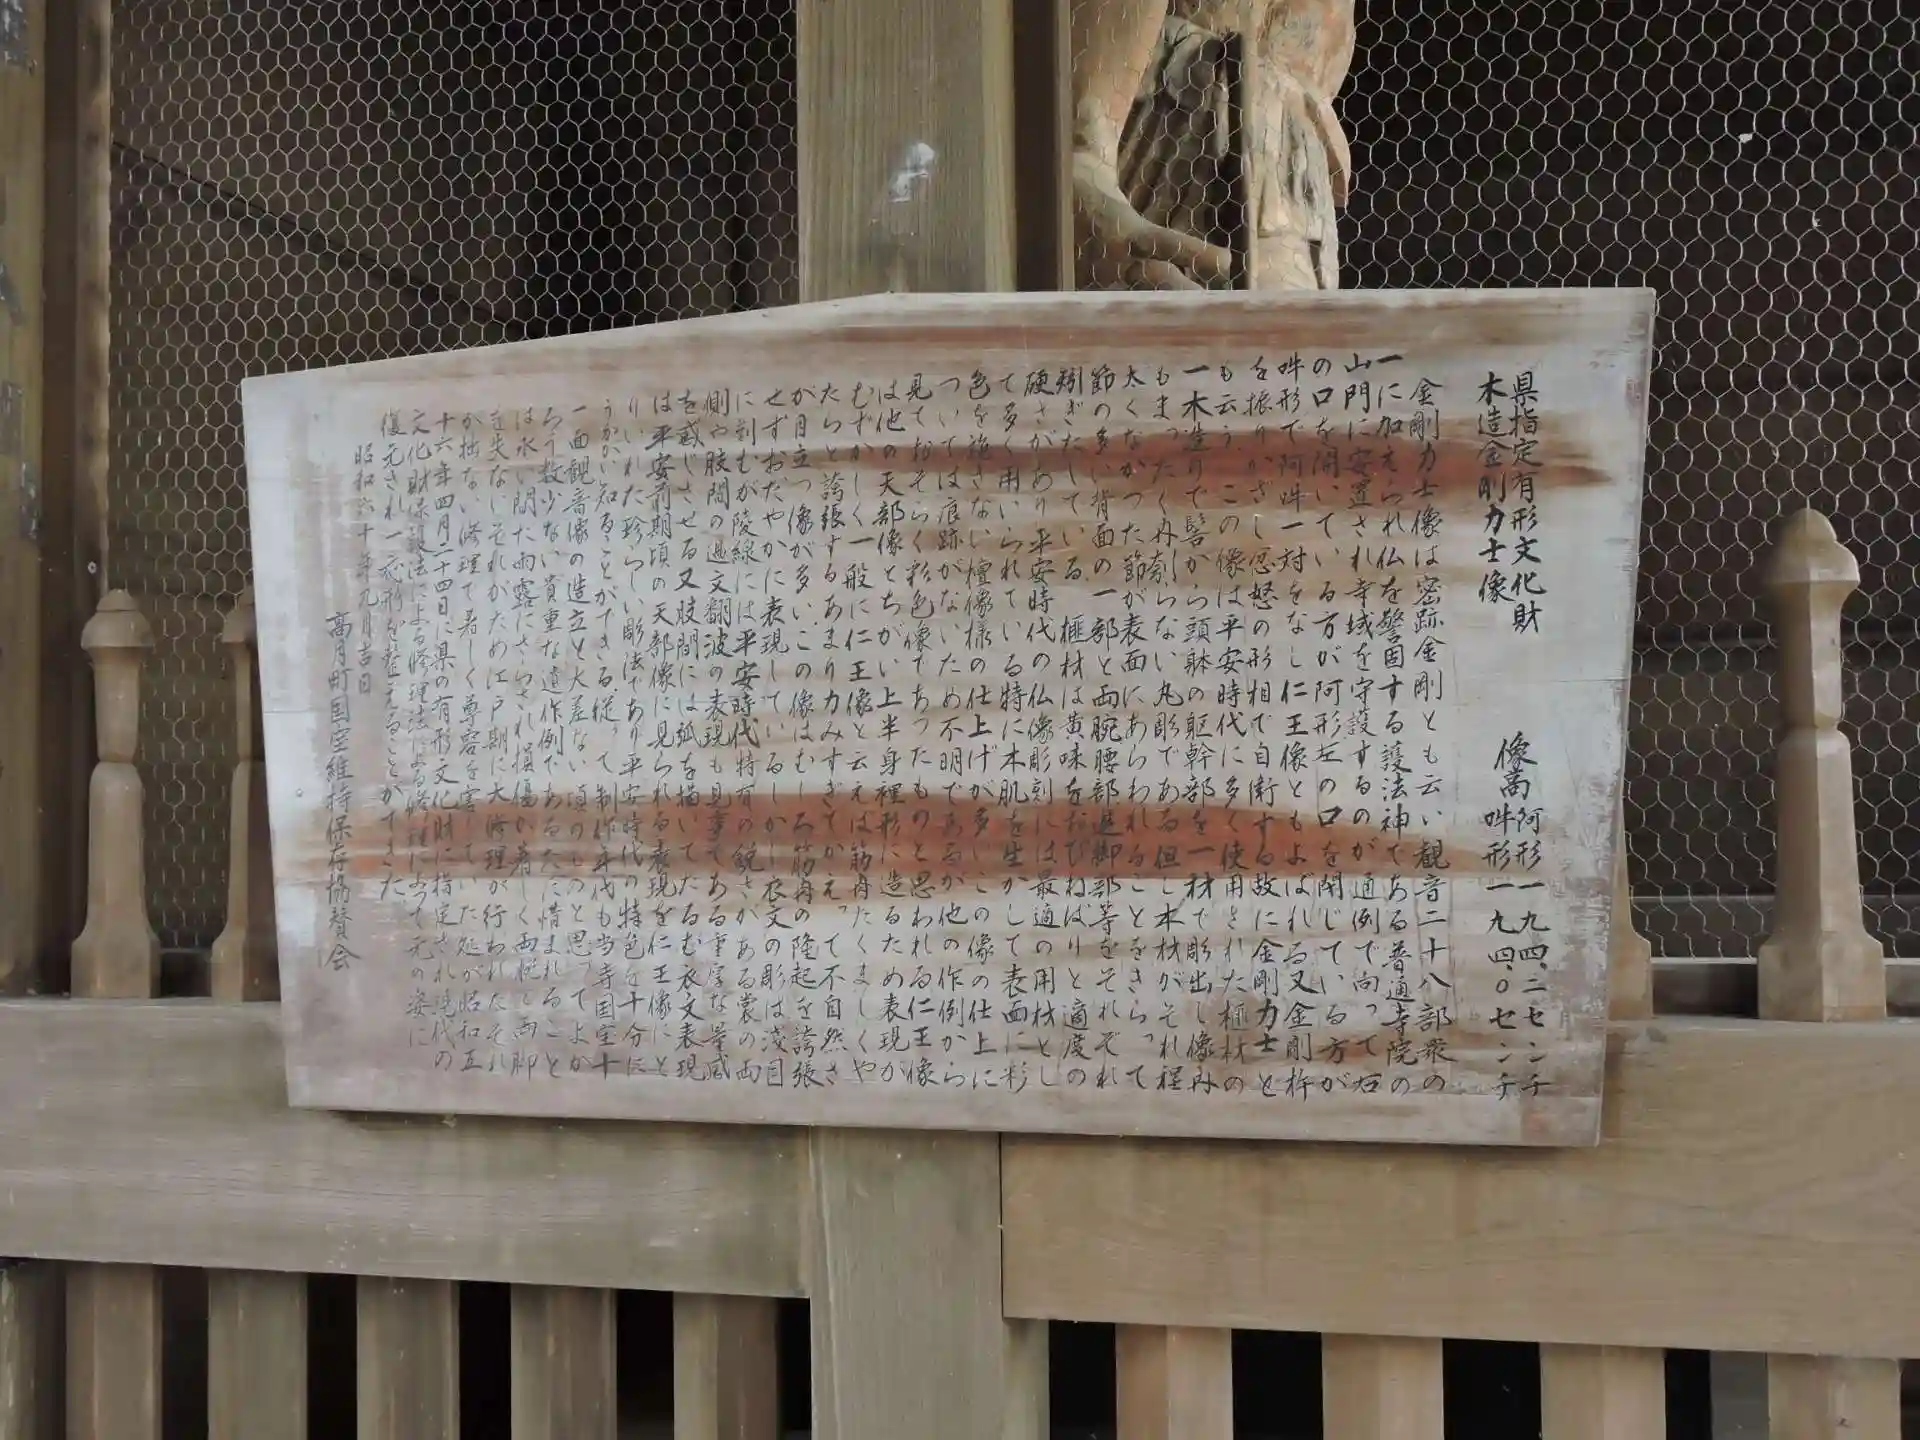 県指定有形文化財
木造金剛力士像
像高 阿形一九四、三センチ
吽形一九四、〇センチ
金剛力士像は密跡金剛とも云い観音二十八部衆の
一に加えられ仏を警固する護法神である普通寺院の
山門に安置され寺域を守護するのが通例で向って右
の口を開いている方が阿形左の口を閉じている方が
吽形で阿吽一対をなし仁王像ともよばれる又金剛杵
を振りかざし忿怒の形相で自衛する故に金剛力士と
も云う、この像は平安時代に多く使用された榧材の
一木造りで髻から頭躰の躯幹部を一材で彫出し像内
もまったく内刳らない丸彫である但し木材がそれ程
太くなかった節が表面にあらわれることをきらって
節の多い背面の一部と両腕腰部遊脚部等をそれぞれ
矧ぎたしている。榧材は黄味をおびねばりと適度の
硬さがあり平安時代の仏像彫刻には最適の用材とし
て多く用いられている特に木肌を生かして表面に彩
色を施さない檀像様の仕上げが多いこの像の仕上に
ついては痕跡がないため不明であるが他の作例から
見ておそらく彩色像であったものと思われる仁王像
は他の天部像とちがい上半身裸形に造るため表現が
むずかしく一般に仁王像と云えば筋肉たくましくや
たらと誇張するあまり力みすぎてかえって不自然さ
が目立つ像が多いこの像はむしろ筋肉の隆起を誇張
せずおだやかに表現しているしかし衣文の彫は浅目
に刻むが陵線には平安時代特有の鋭さがある裳の両
側や肢間の過文翻波の表現も見事である重厚な量感
を感じさせる又肢間には弧を描いてたるむ衣文表現
は平安前期頃の天部像に見られる表現を仁王像にと
りいれた珍らしい彫法であり平安時代の特色を十分に
うかがい知ることができる従って制作年代も当寺国宝十
一面観音像の造立と大差ない頃のものと思ってよか
ろう数少ない貴重な遺作例であるただ惜まれること
は永い間だ雨露にさらされ損傷が著しく両腕と両脚
を失なしそれがため江戸期に大修理が行われたそれ
が拙ない修理で著しく尊容を害していた処が昭和五
十六年四月二十四日に県の有形文化財に指定され現代の
文化財保護法による修理法による修理によって元の姿に
復元され一応形を整えることができた
昭和六十年九月吉日
高月町国宝維持保存協賛会